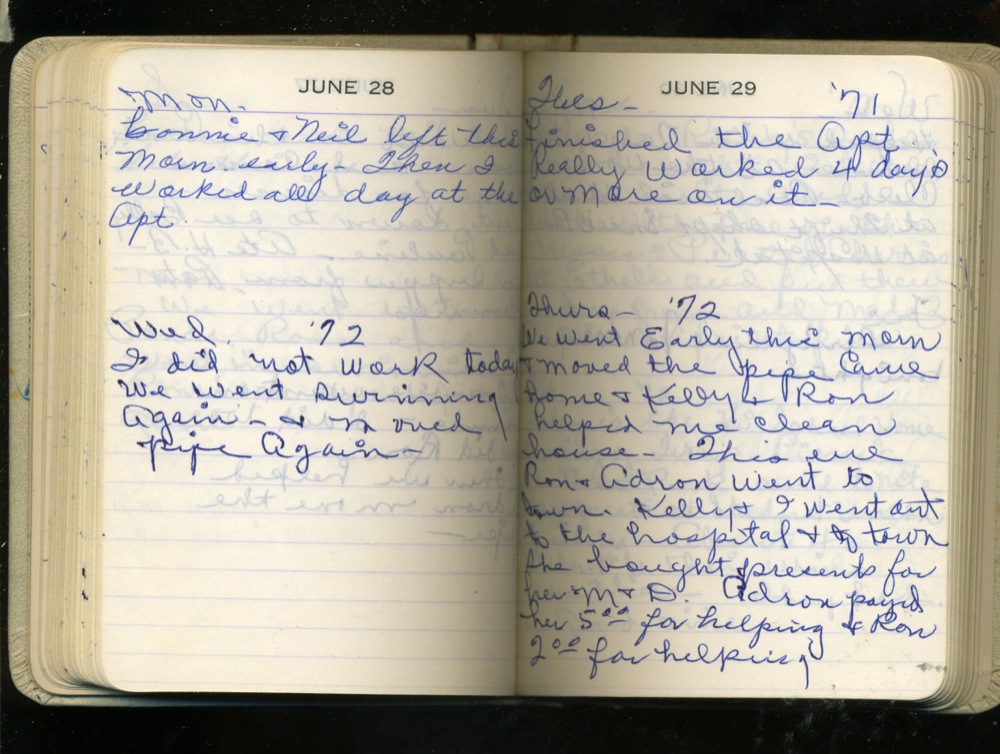 JUNE 28
Mon.
Bonnie & Neil left this
Morn. early - Then I
worked all day at the
Apt.
Wed. '72
I did not work today
We went swimming
Again - & moved
pipe Again -
JUNE 29
Tues - '71
finished the Apt.
Really Worked 4 days
or More on it -
Thurs - '72
We went Early this Morn
& moved the pipe Came
home & Kelly & Ron
helped me clean
house - This eve
Ron & Adron Went to
town. Kelly & I went out
to the hospital & to town
She bought presents for
her M & D. Adron payed
her 5.00 for helping & Ron
2.00 for helping